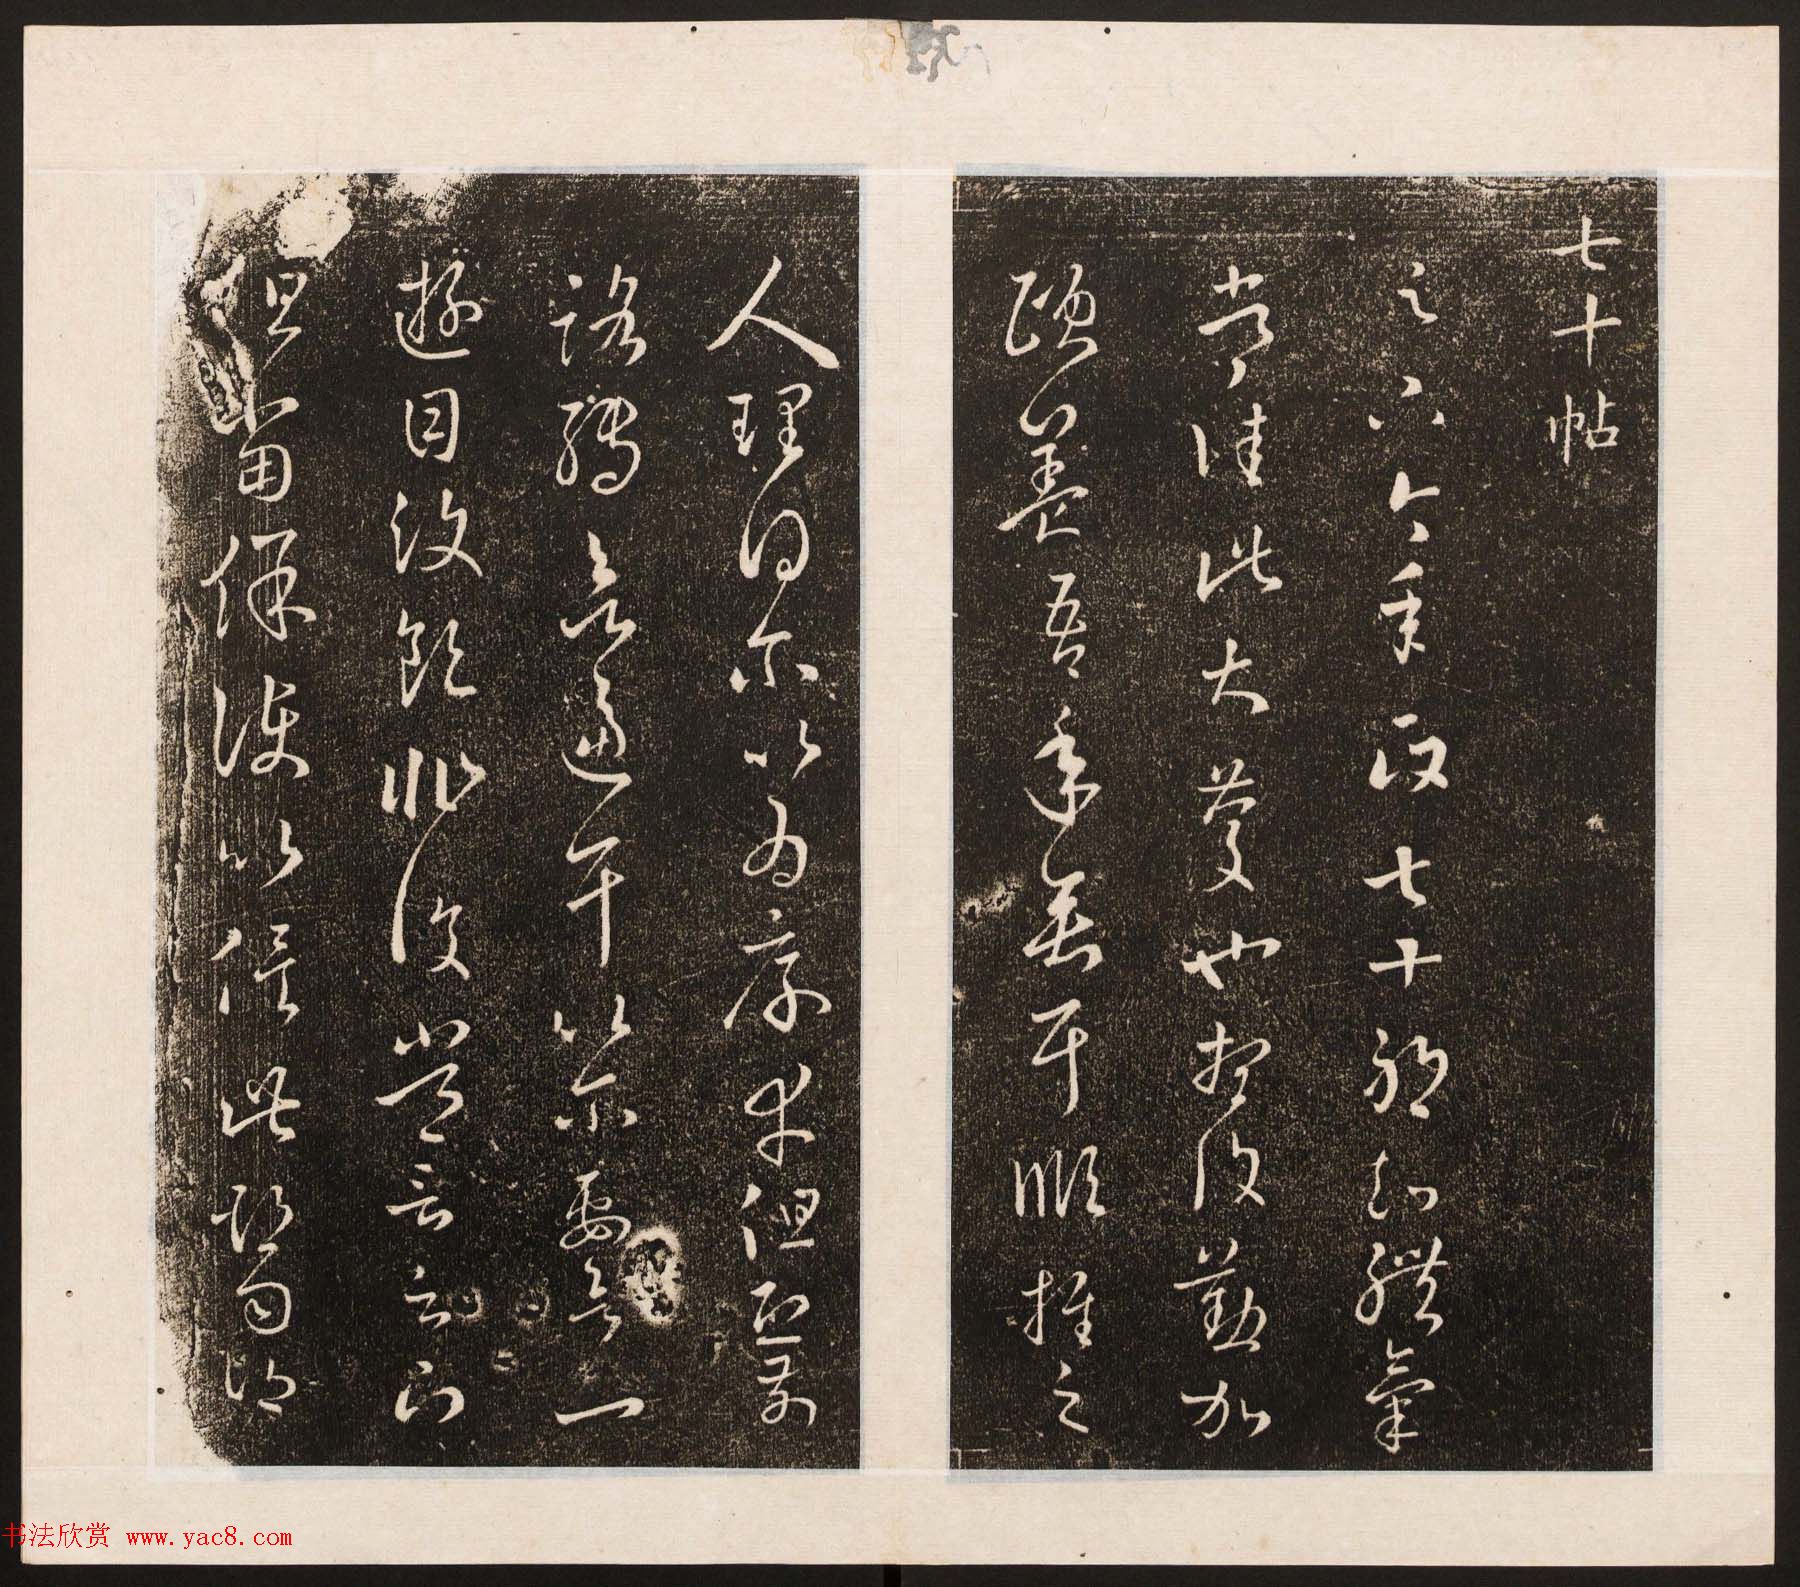 七十帖
足下今年政七十耶知體氣
常佳此大慶也想復勤加
頤養吾年垂耳順推之
人理得尔以為厚幸但恐前
路轉欲逼耳以尔要欲一
遊目汶領非復常言足下
但當保護以俟此期勿謂
书法欣赏 www.yac8.com